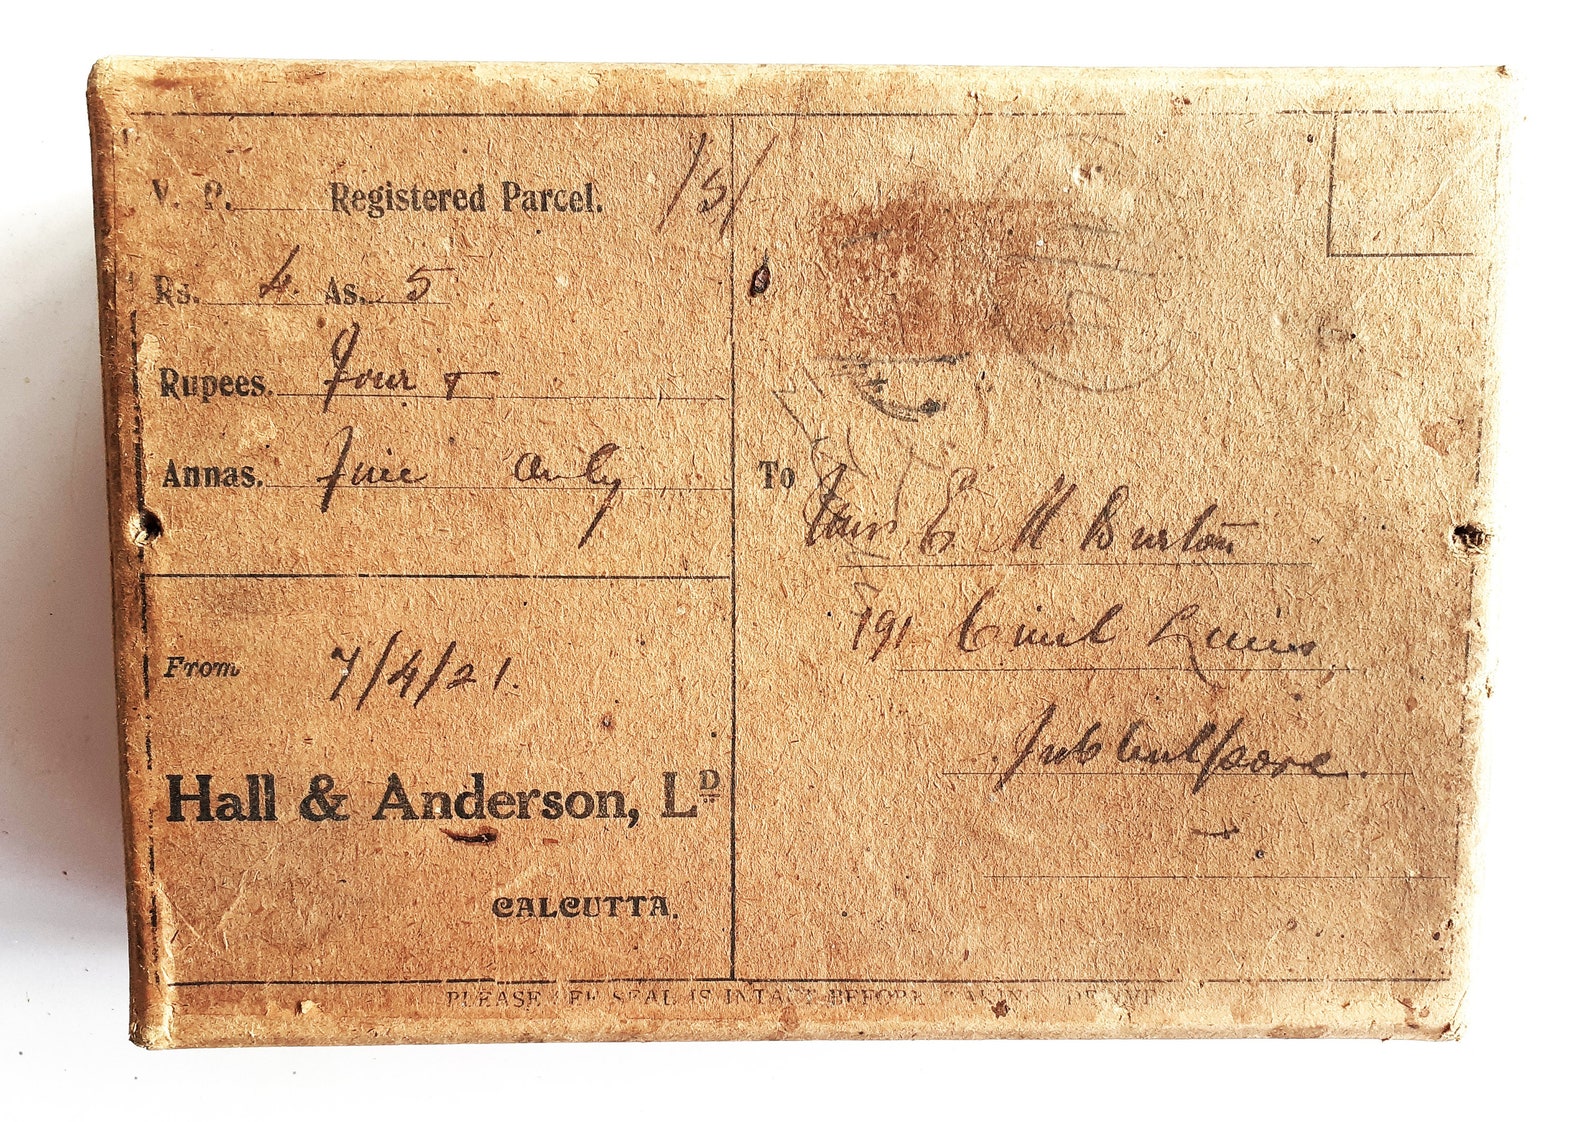 V. P. Registered Parcel. 15/-
Rs. 4. As. 5
Rupees. Four +
Annas. Five only
From 7/4/21.
Hall & Anderson, LD
CALCUTTA.
To E. M. Burton
191 Civil Lines
Jubbulpore.
PLEASE SEAL IS INTACT BEFORE